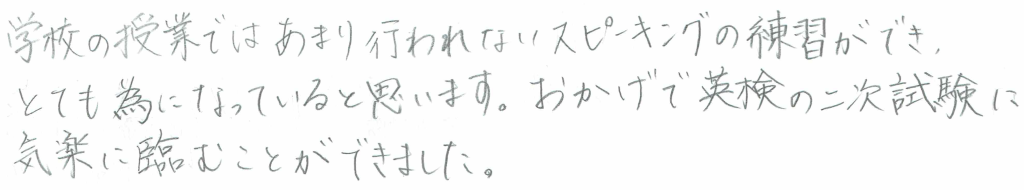 学校の授業ではあまり行われないスピーキングの練習ができ、
とても為になっていると思います。おかげで英検の二次試験に
気楽に臨むことができました。